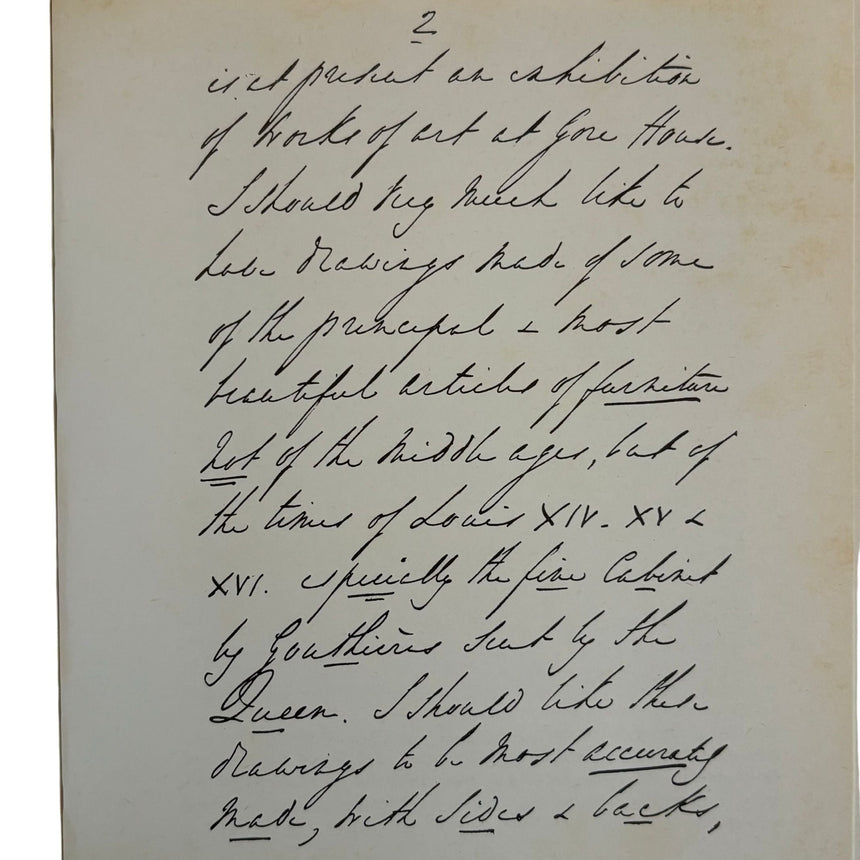 2
is at present an exhibition
of Works of art at Gore House.
I should very much like to
have drawings made of some
of the principal & most
beautiful articles of furniture
not of the Middle ages, but of
the times of Louis XIV. XV &
XVI. especially the fine Cabinet
by Gouthières sent by the
Queen. I should like these
drawings to be most accurately
made, with sides & backs,